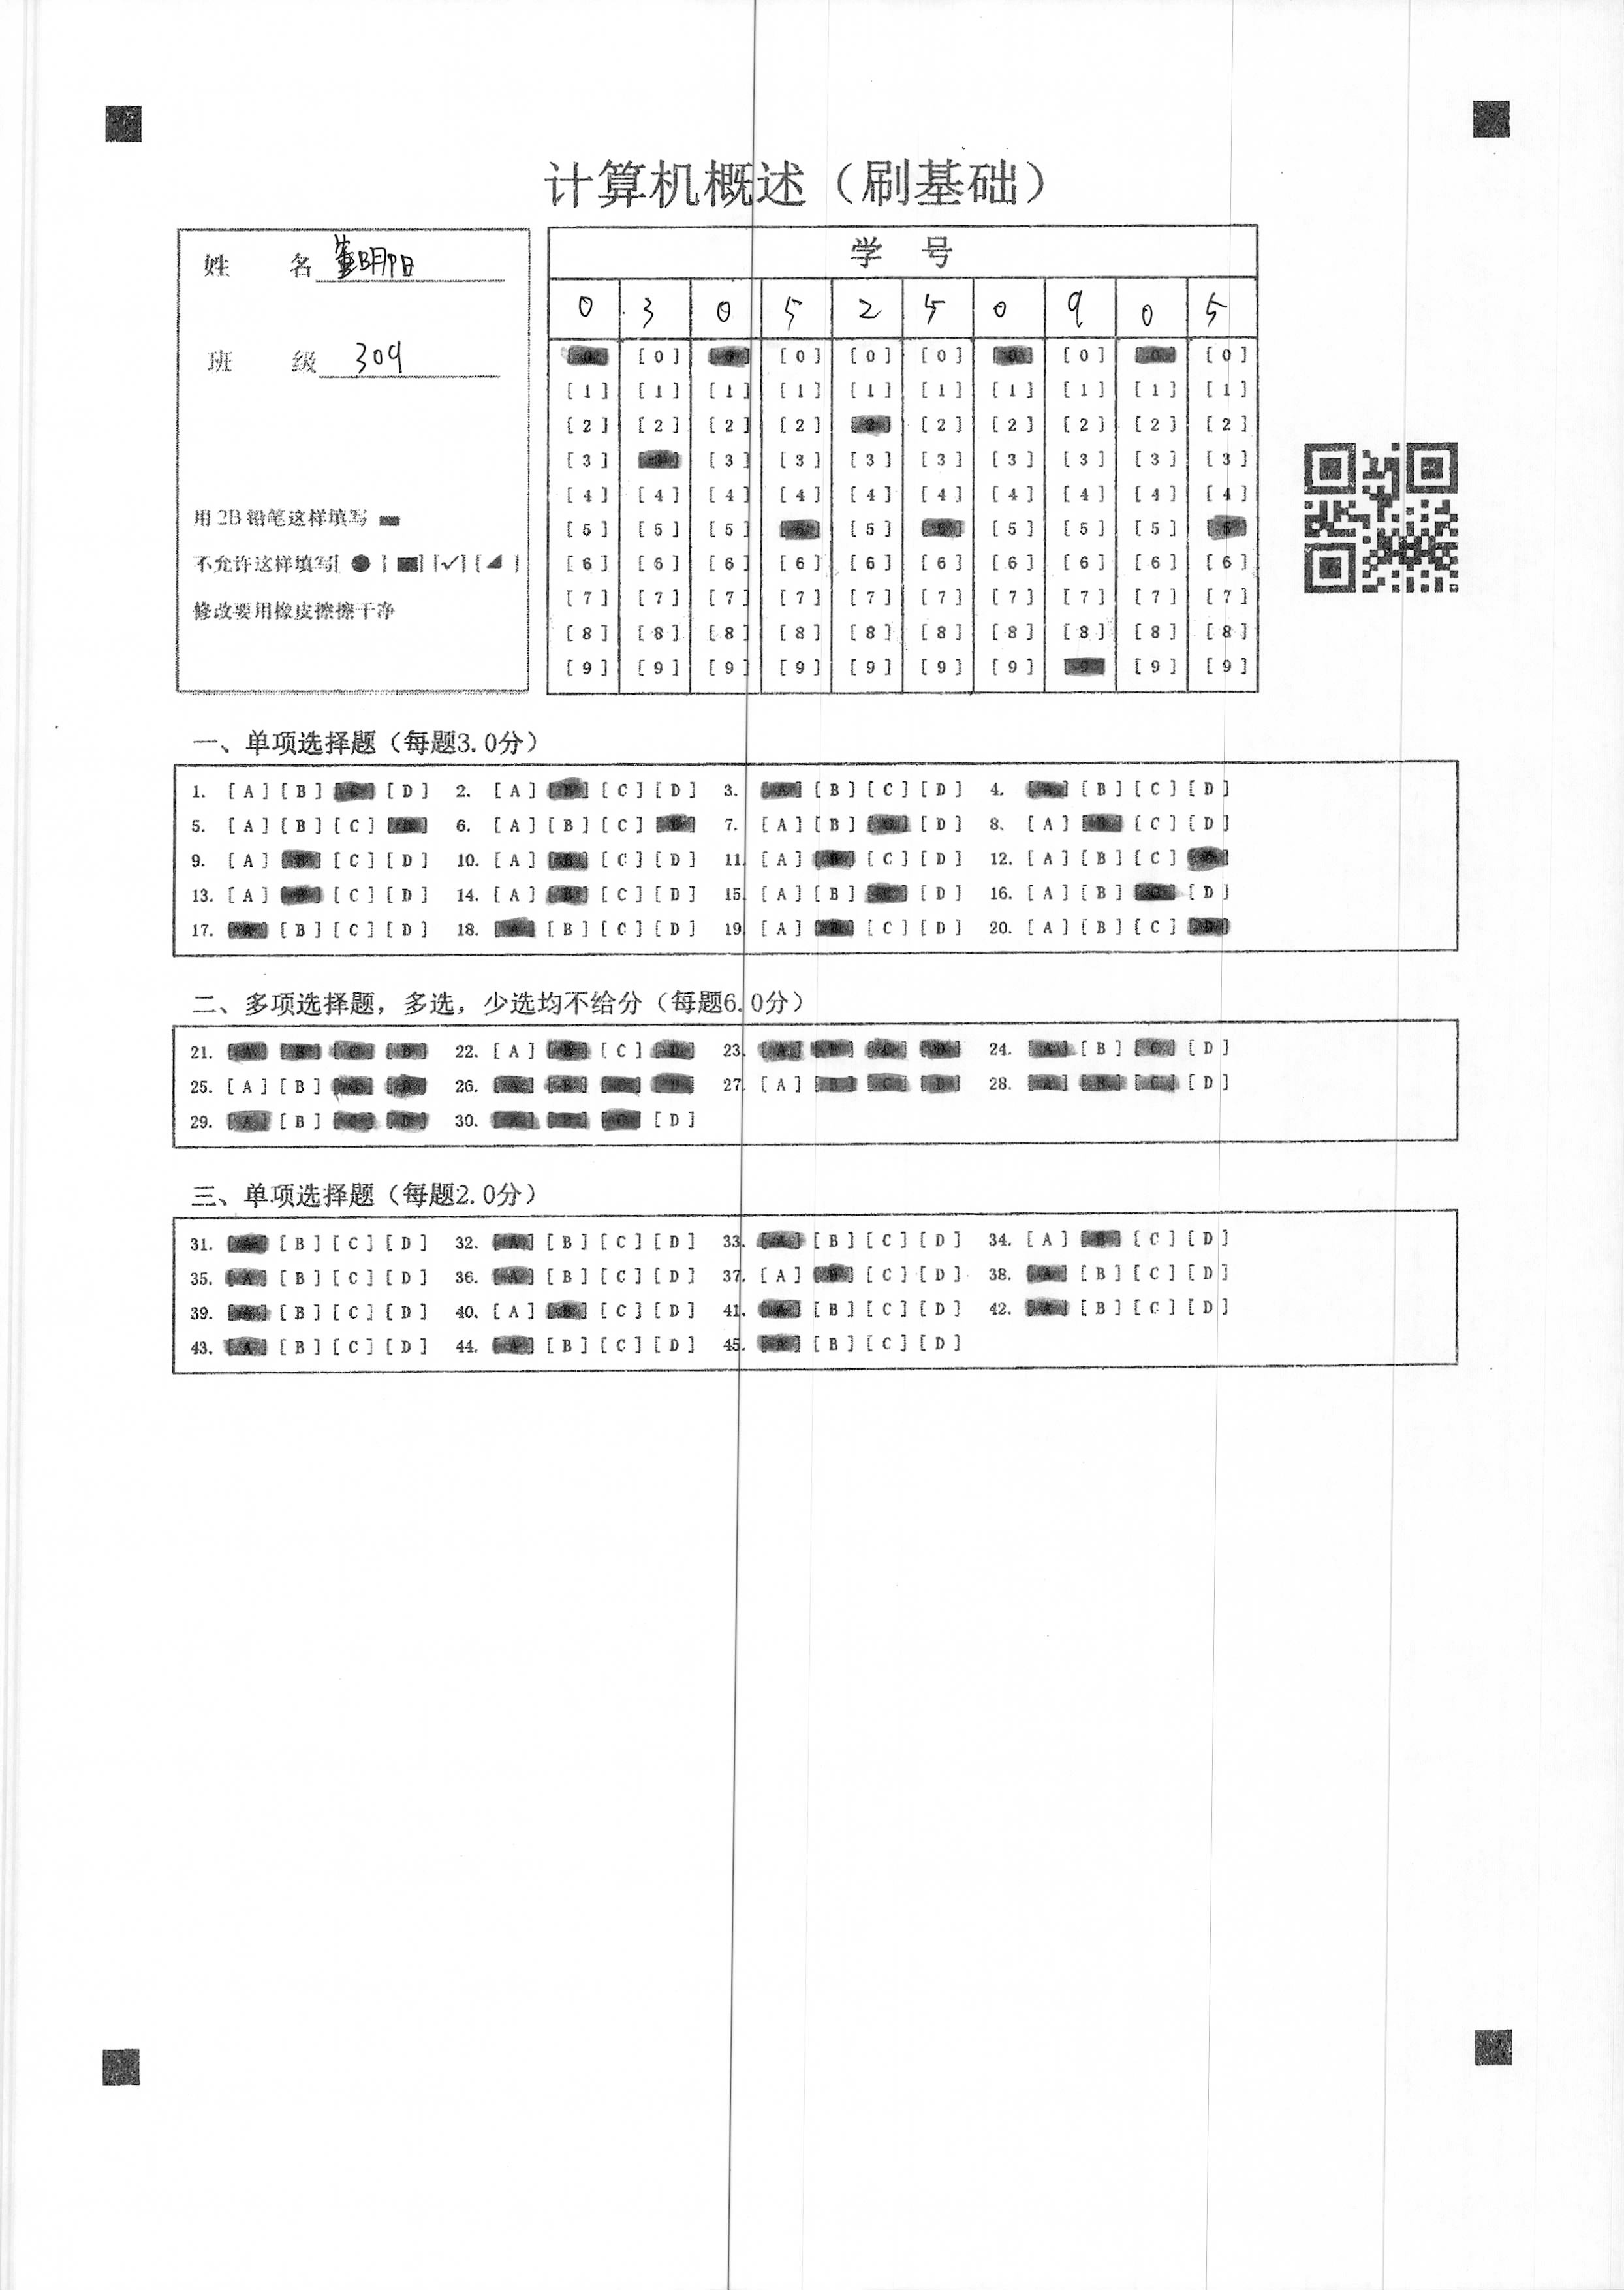 计算机概述（刷基础）
姓 名 董明阳
班 级 309
用 2B 铅笔这样填写
不允许这样填写[ ● ] [■] [✓] [◢ ]
修改要用橡皮擦擦干净
学 号
0 3 0 5 2 5 0 9 0 5
[0] [0] [0] [0] [0] [0] [0] [0] [0] [0]
[1] [1] [1] [1] [1] [1] [1] [1] [1] [1]
[2] [2] [2] [2] [2] [2] [2] [2] [2] [2]
[3] [3] [3] [3] [3] [3] [3] [3] [3] [3]
[4] [4] [4] [4] [4] [4] [4] [4] [4] [4]
[5] [5] [5] [5] [5] [5] [5] [5] [5] [5]
[6] [6] [6] [6] [6] [6] [6] [6] [6] [6]
[7] [7] [7] [7] [7] [7] [7] [7] [7] [7]
[8] [8] [8] [8] [8] [8] [8] [8] [8] [8]
[9] [9] [9] [9] [9] [9] [9] [9] [9] [9]
一、单项选择题（每题3.0分）
1. [A] [B] [C] [D] 2. [A] [B] [C] [D] 3. [A] [B] [C] [D] 4. [A] [B] [C] [D]
5. [A] [B] [C] [D] 6. [A] [B] [C] [D] 7. [A] [B] [C] [D] 8. [A] [B] [C] [D]
9. [A] [B] [C] [D] 10. [A] [B] [C] [D] 11. [A] [B] [C] [D] 12. [A] [B] [C] [D]
13. [A] [B] [C] [D] 14. [A] [B] [C] [D] 15. [A] [B] [C] [D] 16. [A] [B] [C] [D]
17. [A] [B] [C] [D] 18. [A] [B] [C] [D] 19. [A] [B] [C] [D] 20. [A] [B] [C] [D]
二、多项选择题，多选，少选均不给分（每题6.0分）
21. [A] [B] [C] [D] 22. [A] [B] [C] [D] 23. [A] [B] [C] [D] 24. [A] [B] [C] [D]
25. [A] [B] [C] [D] 26. [A] [B] [C] [D] 27. [A] [B] [C] [D] 28. [A] [B] [C] [D]
29. [A] [B] [C] [D] 30. [A] [B] [C] [D]
三、单项选择题（每题2.0分）
31. [A] [B] [C] [D] 32. [A] [B] [C] [D] 33. [A] [B] [C] [D] 34. [A] [B] [C] [D]
35. [A] [B] [C] [D] 36. [A] [B] [C] [D] 37. [A] [B] [C] [D] 38. [A] [B] [C] [D]
39. [A] [B] [C] [D] 40. [A] [B] [C] [D] 41. [A] [B] [C] [D] 42. [A] [B] [C] [D]
43. [A] [B] [C] [D] 44. [A] [B] [C] [D] 45. [A] [B] [C] [D]